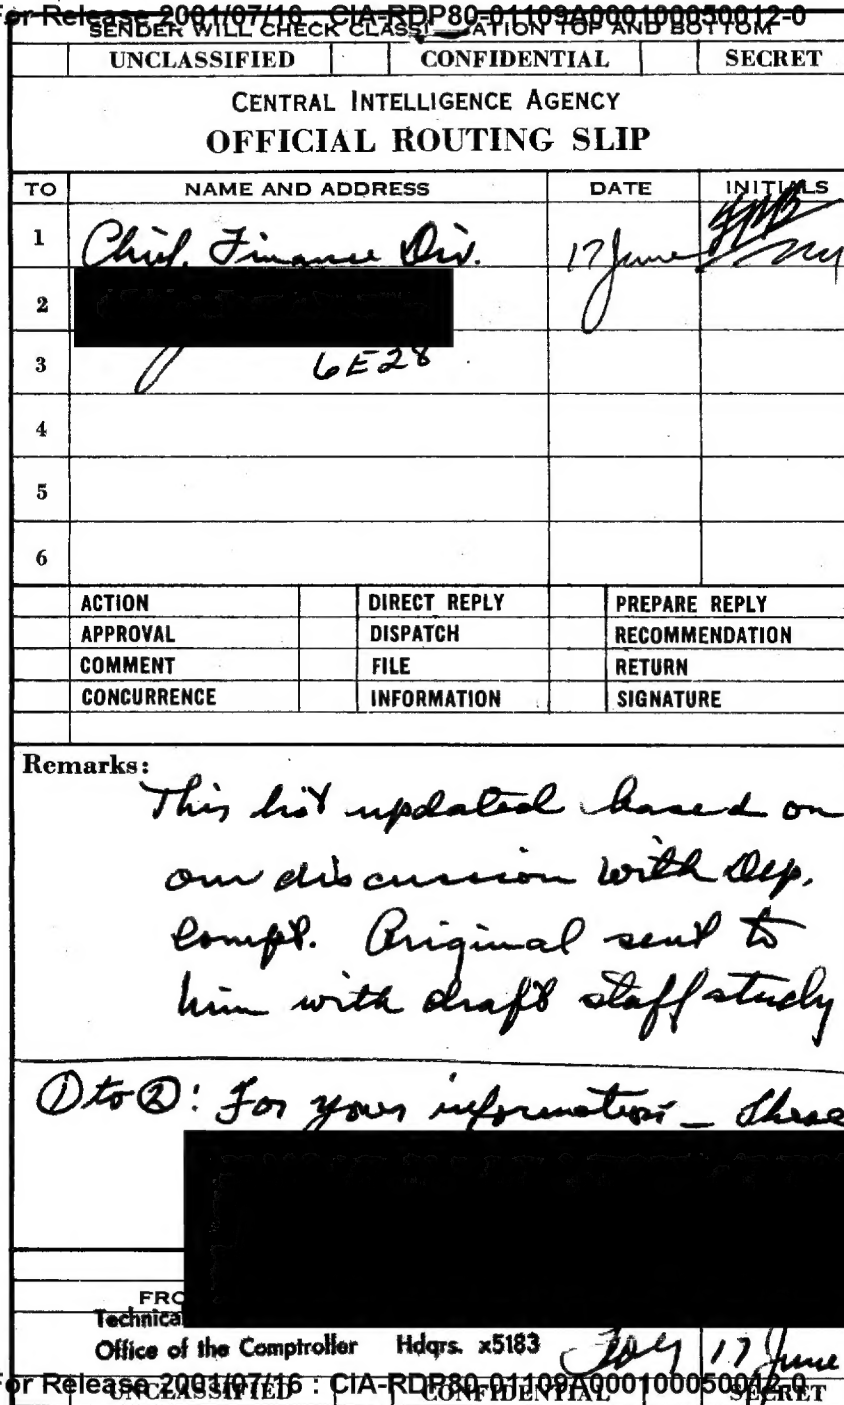 or Release 2001/07/16 : CIA-RDP80-01109A000100050012-0
SENDER WILL CHECK CLASSI ATION TOP AND BOTTOM
UNCLASSIFIED CONFIDENTIAL SECRET
CENTRAL INTELLIGENCE AGENCY
OFFICIAL ROUTING SLIP
TO NAME AND ADDRESS DATE INITIALS
1 Chief, Finance Div. 17 June
2
3 6E28
4
5
6
ACTION DIRECT REPLY PREPARE REPLY
APPROVAL DISPATCH RECOMMENDATION
COMMENT FILE RETURN
CONCURRENCE INFORMATION SIGNATURE
Remarks:
This list updated based on
our discussion with Dep.
Compt. Original sent to
him with draft staff study
① to ②: For your information — These
FRO
Technica
Office of the Comptroller Hdqrs. x5183 17 June
or Release 2001/07/16 : CIA-RDP80-01109A000100050012-0
UNCLASSIFIED CONFIDENTIAL SECRET